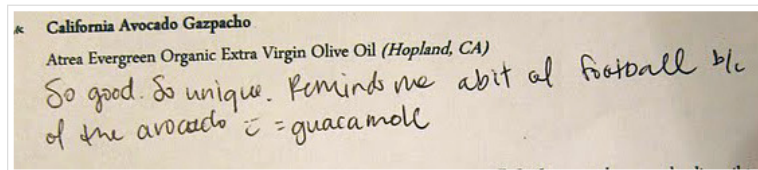 California Avocado Gazpacho
Atrea Evergreen Organic Extra Virgin Olive Oil (Hopland, CA)
So good. So unique. Reminds me abit of football b/c
of the avocado = guacamole